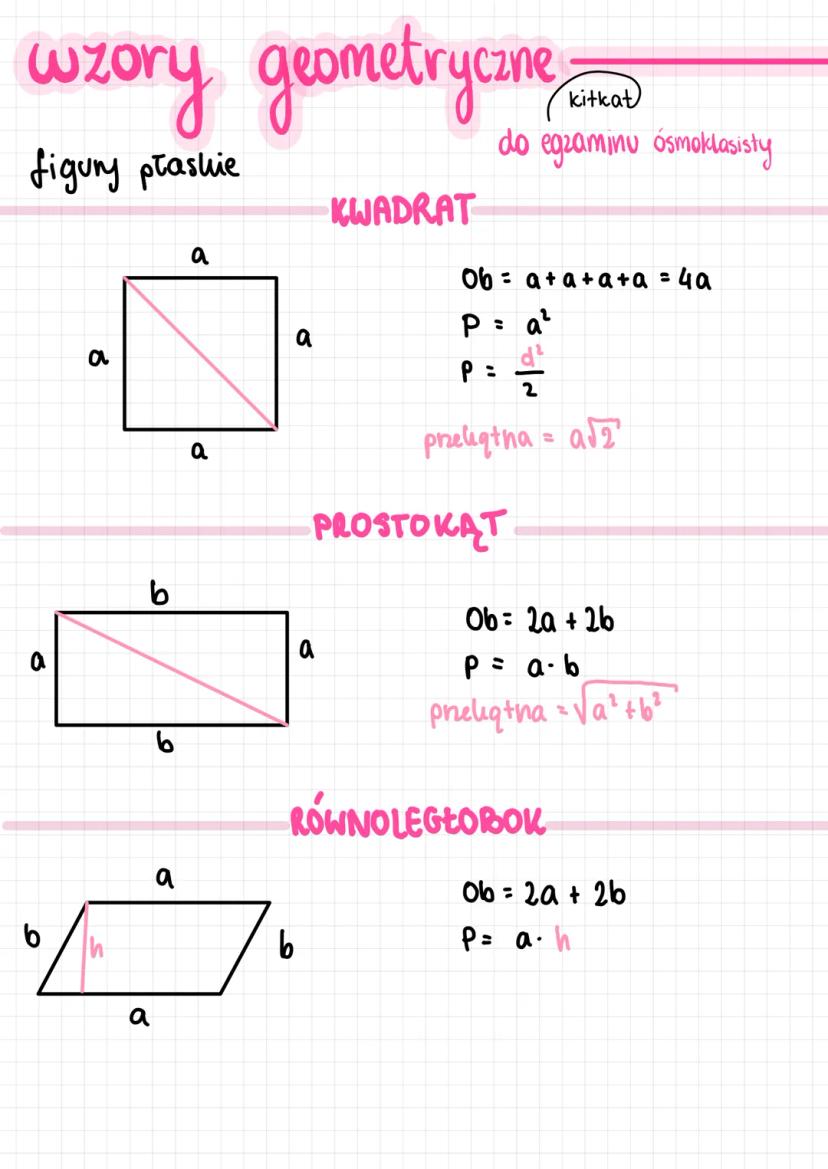 wzory geometryczne
kitkat
do egzaminu ósmoklasisty
figury płaskie
KWADRAT
a
a
a
a
Ob = a+a+a+a = 4a
P = a²
P = d²/2
przekątna = a√2
PROSTOKĄT
b
a
a
b
Ob = 2a + 2b
P = a · b
przekątna = √a² + b²
RÓWNOLEGŁOBOK
a
b
h
b
a
Ob = 2a + 2b
P = a · h